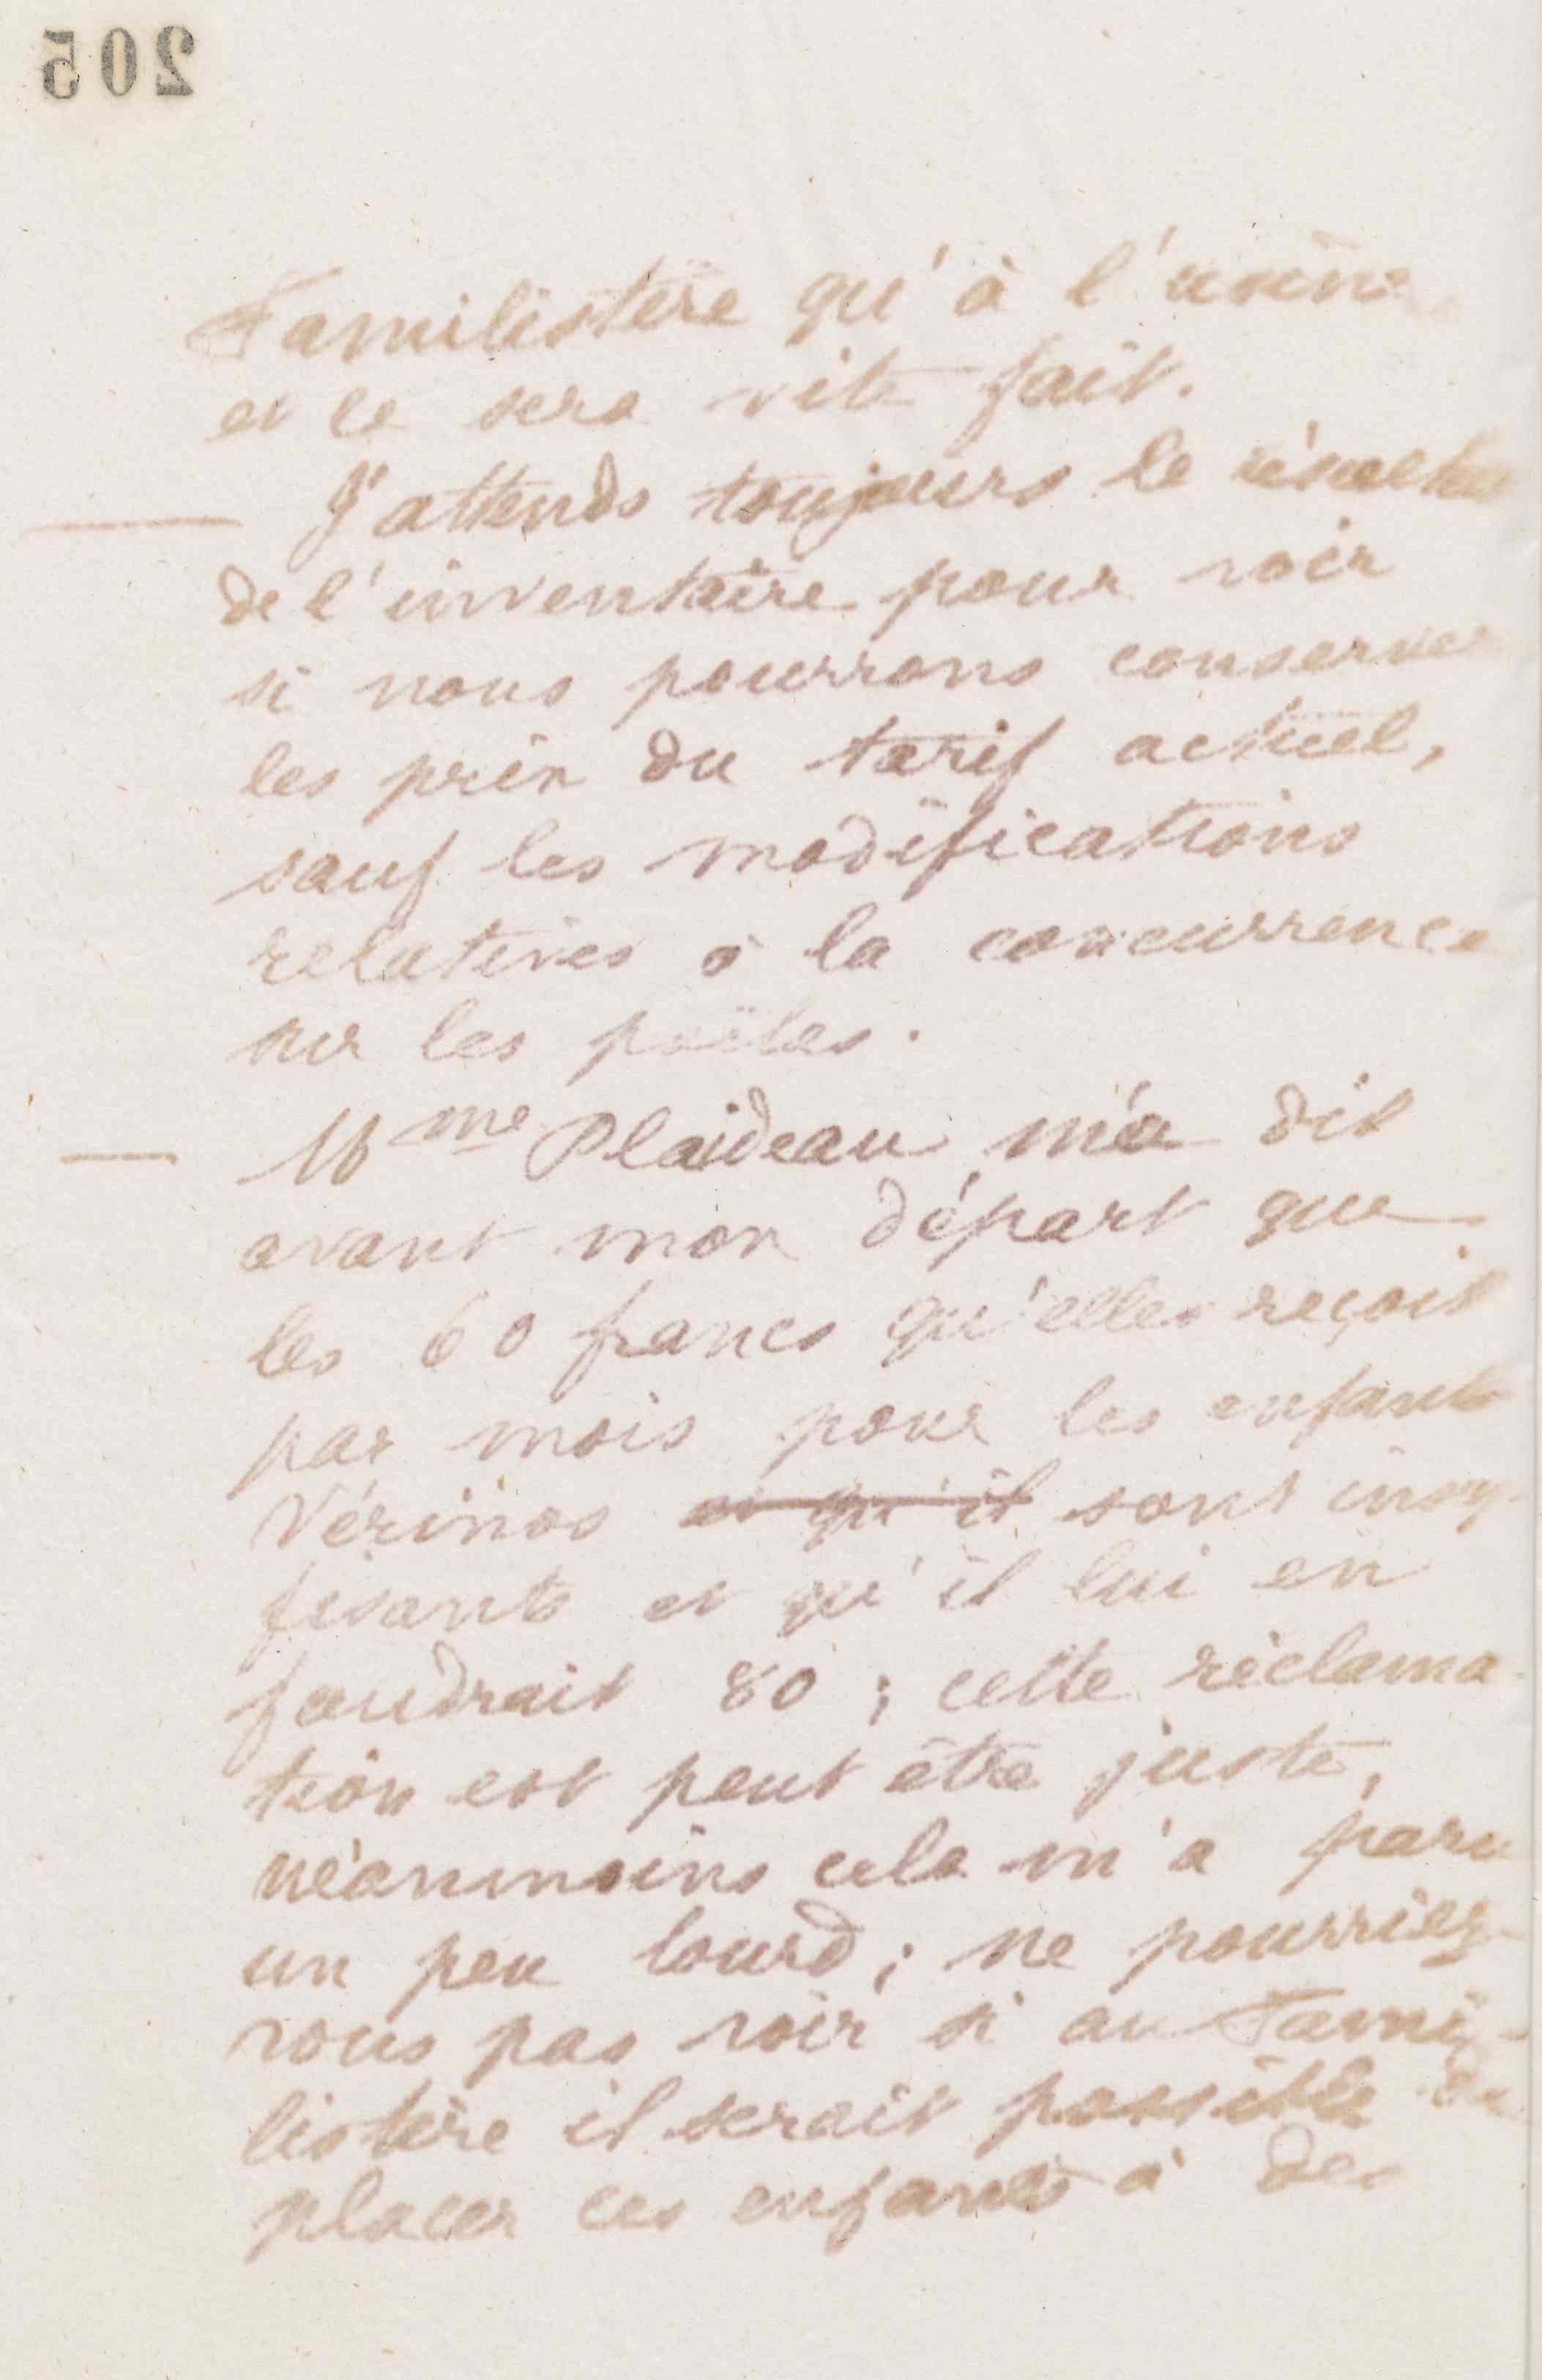 205
Familistère qu'à l'usine
et ce sera vite fait.
— J'attends toujours le résultat
de l'inventaire pour voir
si nous pourrons conserver
les prix du tarif actuel,
sauf les modifications
relatives à la concurrence
sur les poëles.
— Mme Plaideau m'a dit
avant mon départ que
les 60 francs qu'elles reçoit
par mois pour les enfants
Vérinos et qu'il sont insuf-
fisants et qu'il lui en
faudrait 80 ; cette réclama-
tion est peut être juste,
néanmoins cela m'a paru
un peu lourd ; ne pourriez-
vous pas voir si au Fami-
listère il serait possible de
placer ces enfants à des